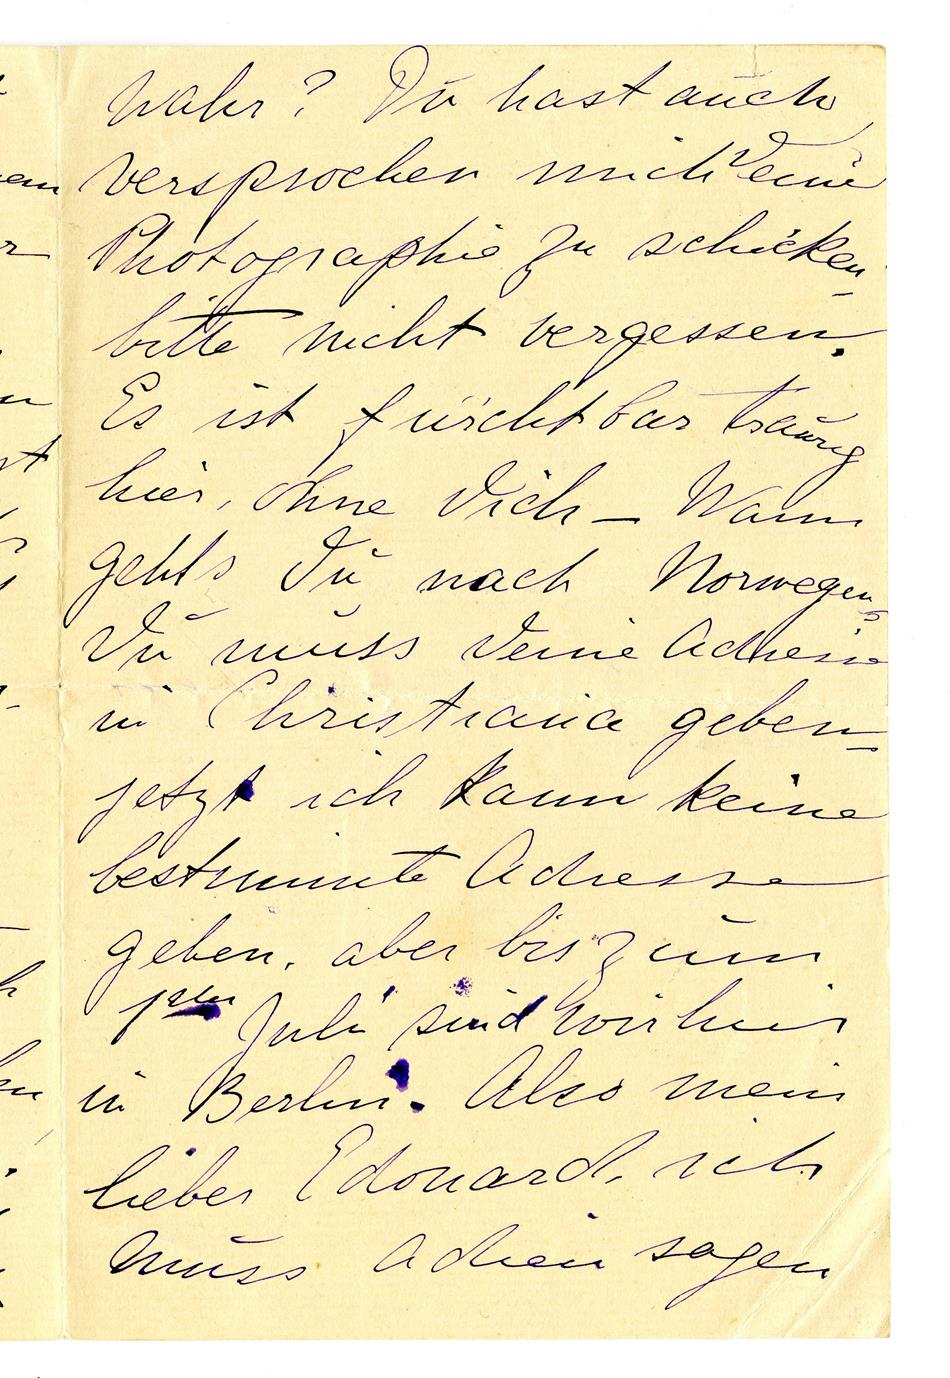 Wahr? Du hast auch
versprochen mich Deine
Photographie zu schicken
bitte nicht vergessen.
Es ist fürchtbar traurig
hier, ohne Dich – Wann
gehts Du nach Norwegen,
Du muss Deine Adresse
in Christiania geben –
jetzt ich kann keine
bestimmte Adresse
geben, aber bis zum
1sten Juli sind wir hier
in Berlin. Also mein
lieber Edouard, ich
muss adieu sagen